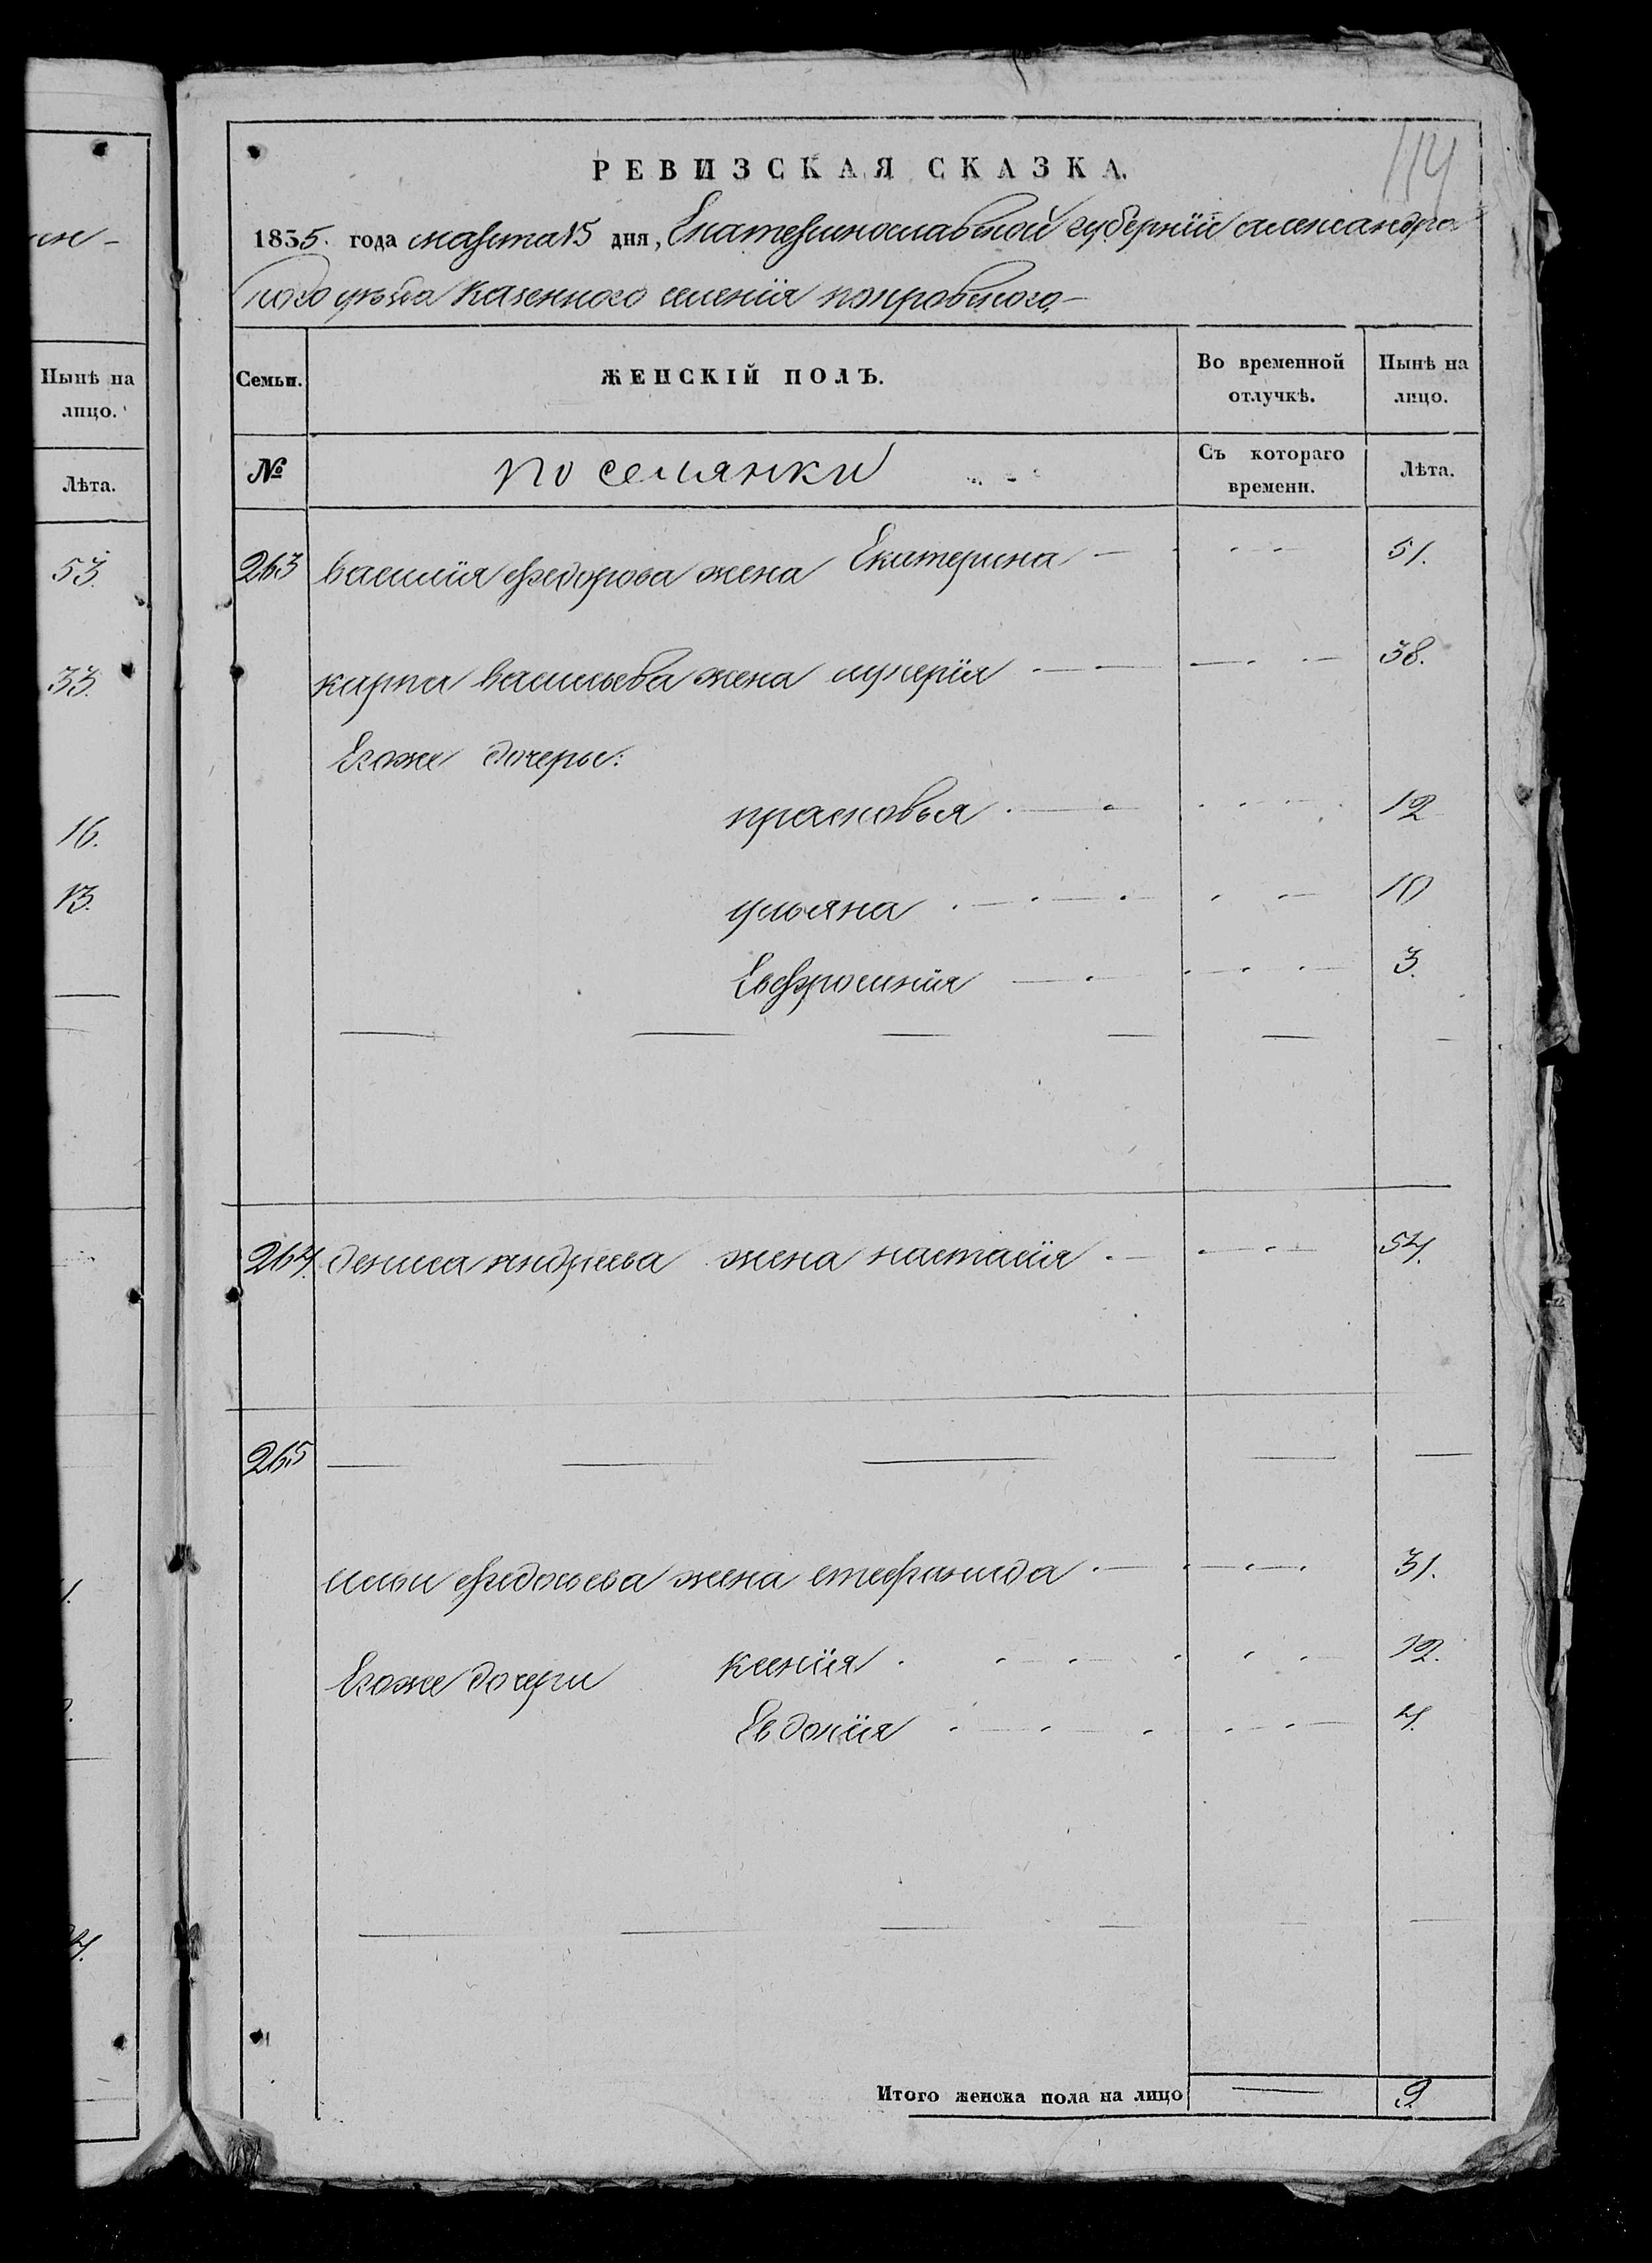 114
РЕВИЗСКАЯ СКАЗКА.
1835. года марта 15 дня, Екатеринославской губернїи александров
ского уѣзда казенного селенїя покровского
Нынѣ на лицо.
Семьи.
ЖЕНСКІЙ ПОЛЪ.
Во временной отлучкѣ.
Нынѣ на лицо.
Лѣта.
№
поселянки
Съ котораго времени.
Лѣта.
53.
263 василїя федорова жена Екатерина 51.
33.
карпа васильева жена лукерїя 38.
Егоже дочеры:
16.
прасковья 12
13.
ульяна 10
Евфросинїя 3.
264. дениса андреева жена настасїя 54.
265
ильи федосьева жена стефанида 31.
Егоже дочери ксенїя 12.
Евдокїя 4.
Итого женска пола на лицо 9